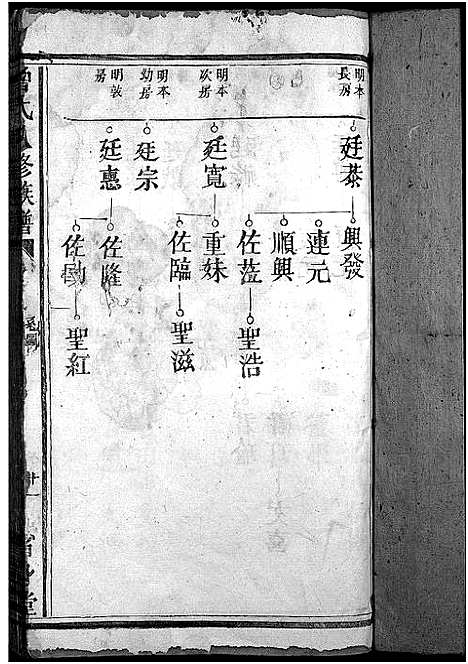 明本長房
廷泰
興發
連元
順興
佐蒞
聖浩
明本次房
廷寬
重妹
佐臨
聖滋
明本幼房
廷宗
明敦房
廷惠
佐隆
聖紅
氏八修族譜